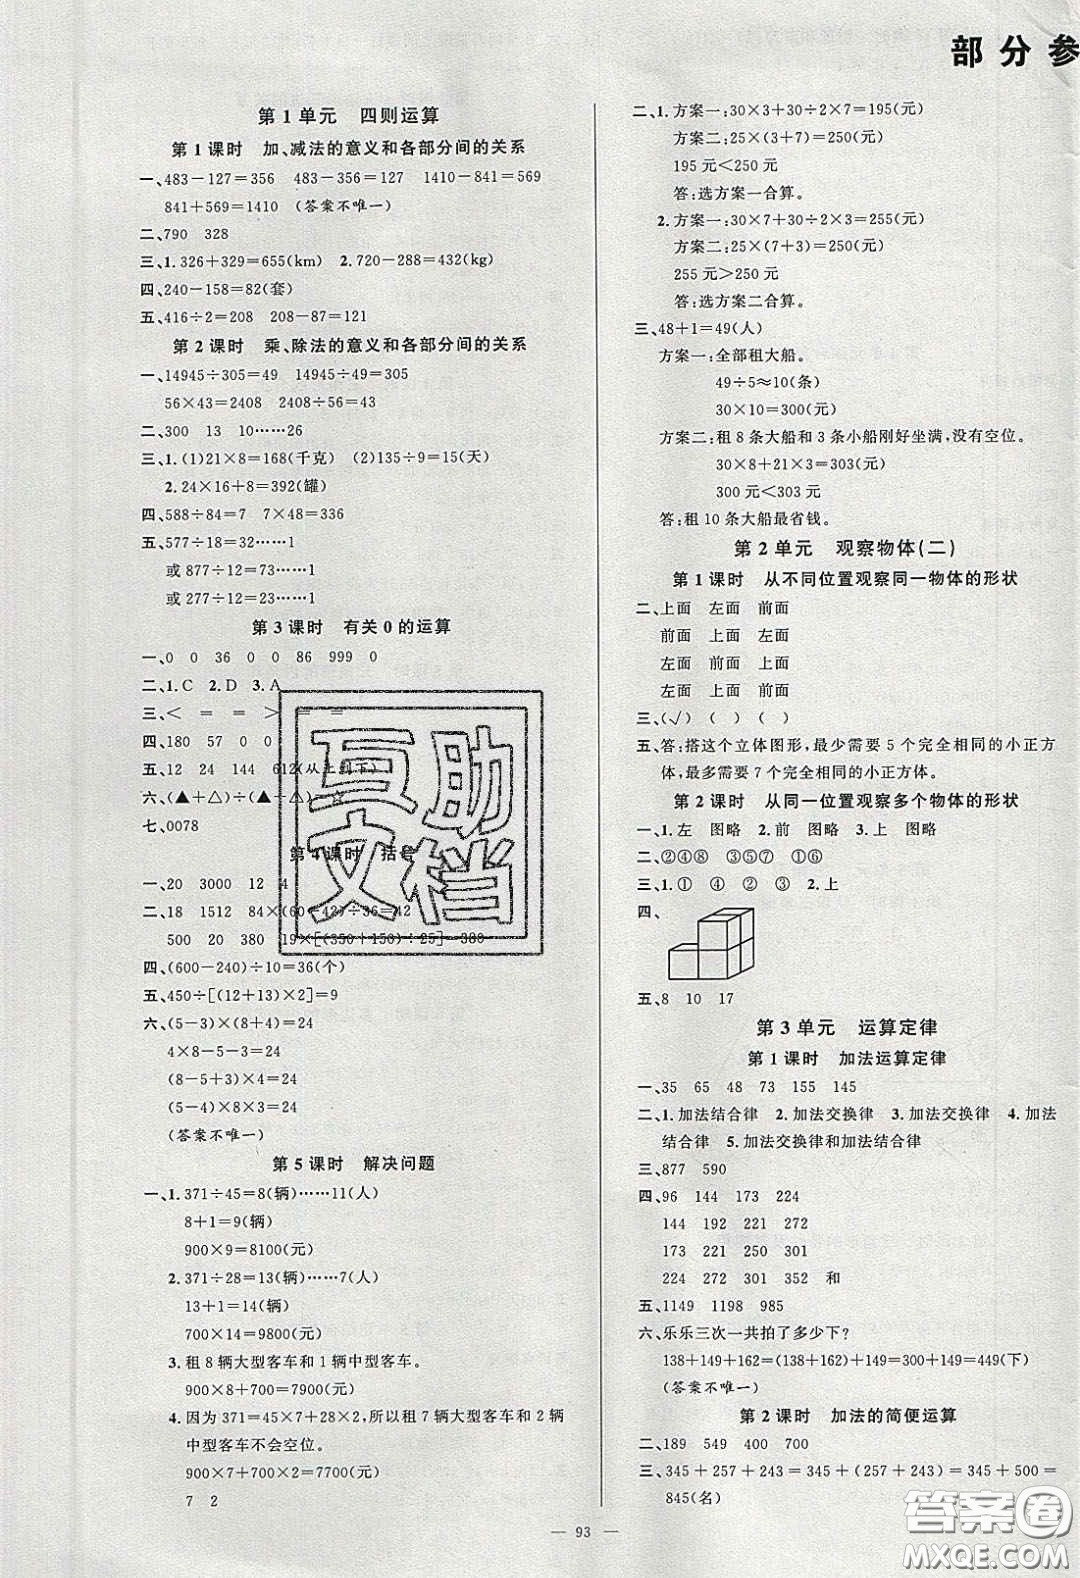 部分参
第1单元 四则运算
第1课时 加、减法的意义和各部分间的关系
一、483－127＝356 483－356＝127 1410－841＝569
841＋569＝1410 (答案不唯一)
二、790 328
三、1.326＋329＝655(km) 2.720－288＝432(kg)
四、240－158＝82(套)
五、416÷2＝208 208－87＝121
第2课时 乘、除法的意义和各部分间的关系
一、14945÷305＝49 14945÷49＝305
56×43＝2408 2408÷56＝43
二、300 13 10……26
三、1.(1)21×8＝168(千克) (2)135÷9＝15(天)
2.24×16＋8＝392(罐)
四、588÷84＝7 7×48＝336
五、577÷18＝32……1
或877÷12＝73……1
或277÷12＝23……1
第3课时 有关0的运算
一、0 0 36 0 0 86 999 0
二、1.C 2.D 3.A
三、＜ ＝ ＝ ＞ ＝ ＝
四、180 57 0 0
五、12 24 144 612(从上到下)
六、(▲＋△)÷(▲＋△)－☆
七、0078
第4课时 括号
一、20 3000 12 4
二、18 1512 84×(60－42)÷36＝42
500 20 380 19×[(350＋150)÷25]＝380
四、(600－240)÷10＝36(个)
五、450÷[(12＋13)×2]＝9
六、(5－3)×(8＋4)＝24
4×8－5－3＝24
(8－5＋3)×4＝24
(5－4)×8×3＝24
(答案不唯一)
第5课时 解决问题
一、1.371÷45＝8(辆)……11(人)
8＋1＝9(辆)
900×9＝8100(元)
2.371÷28＝13(辆)……7(人)
13＋1＝14(辆)
700×14＝9800(元)
3.租8辆大型客车和1辆中型客车。
900×8＋700＝7900(元)
4.因为371＝45×7＋28×2,所以租7辆大型客车和2辆
中型客车不会空位。
900×7＋700×2＝7700(元)
7 2
二、1.方案一:30×3＋30÷2×7＝195(元)
方案二:25×(3＋7)＝250(元)
195元＜250元
答:选方案一合算。
2.方案一:30×7＋30÷2×3＝255(元)
方案二:25×(7＋3)＝250(元)
255元＞250元
答:选方案二合算。
三、48＋1＝49(人)
方案一:全部租大船。
49÷5≈10(条)
30×10＝300(元)
方案二:租8条大船和3条小船刚好坐满,没有空位。
30×8＋21×3＝303(元)
300元＜303元
答:租10条大船最省钱。
第2单元 观察物体(二)
第1课时 从不同位置观察同一物体的形状
二、上面 左面 前面
前面 上面 左面
左面 前面 上面
前面 左面 上面
三、(√) ( ) ( )
五、答:搭这个立体图形,最少需要5个完全相同的小正方
体,最多需要7个完全相同的小正方体。
第2课时 从同一位置观察多个物体的形状
一、1.左 图略 2.前 图略 3.上 图略
二、②④⑧ ③⑤⑦ ①⑥
三、1.① ④ ② ③ 2.上
四、
五、8 10 17
第3单元 运算定律
第1课时 加法运算定律
一、35 65 48 73 155 145
二、1.加法结合律 2.加法交换律 3.加法交换律 4.加法
结合律 5.加法交换律和加法结合律
三、877 590
四、96 144 173 224
144 192 221 272
173 221 250 301
224 272 301 352 和
五、1149 1198 985
六、乐乐三次一共拍了多少下?
138＋149＋162＝(138＋162)＋149＝300＋149＝449(下)
(答案不唯一)
第2课时 加法的简便运算
二、189 549 400 700
三、345＋257＋243＝345＋(257＋243)＝345＋500＝
845(名)
— 93 —
互助
文档
答案圈
MXQE.COM